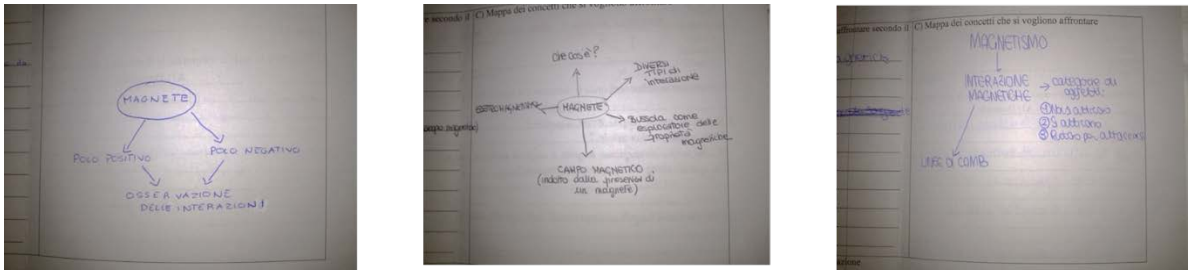 MAGNETE
POLO POSITIVO
POLO NEGATIVO
OSSERVAZIONE
DELLE INTERAZIONI
e secondo il
C) Mappa dei concetti che si vogliono affrontare
che cos'è?
DIVERSI
TIPI di
interazione
MAGNETE
Bussola come
esploratore delle
proprietà
magnetiche
campo magnetico)
CAMPO MAGNETICO
(indotto dalla presenza di
un magnete)
affrontare secondo il
C) Mappa dei concetti che si vogliono affrontare
MAGNETISMO
INTERAZIONI
MAGNETICHE
categorie di
oggetti:
①
② S'attirano
③
LINEE DI CAMPO
azione